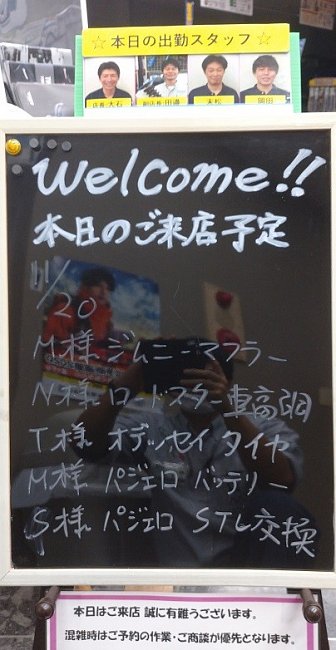 ☆本日の出勤スタッフ☆
店長:大石 副店長:田邉 末松 岡田
Welcome!!
本日のご来店予定
11/20
M様 ジムニーマフラー
N様 ロードスター車高調
T様 オデッセイ タイヤ
M様 パジェロ バッテリー
S様 パジェロ STL交換
本日はご来店 誠に有難うございます。
混雑時はご予約の作業・ご商談が優先となります。